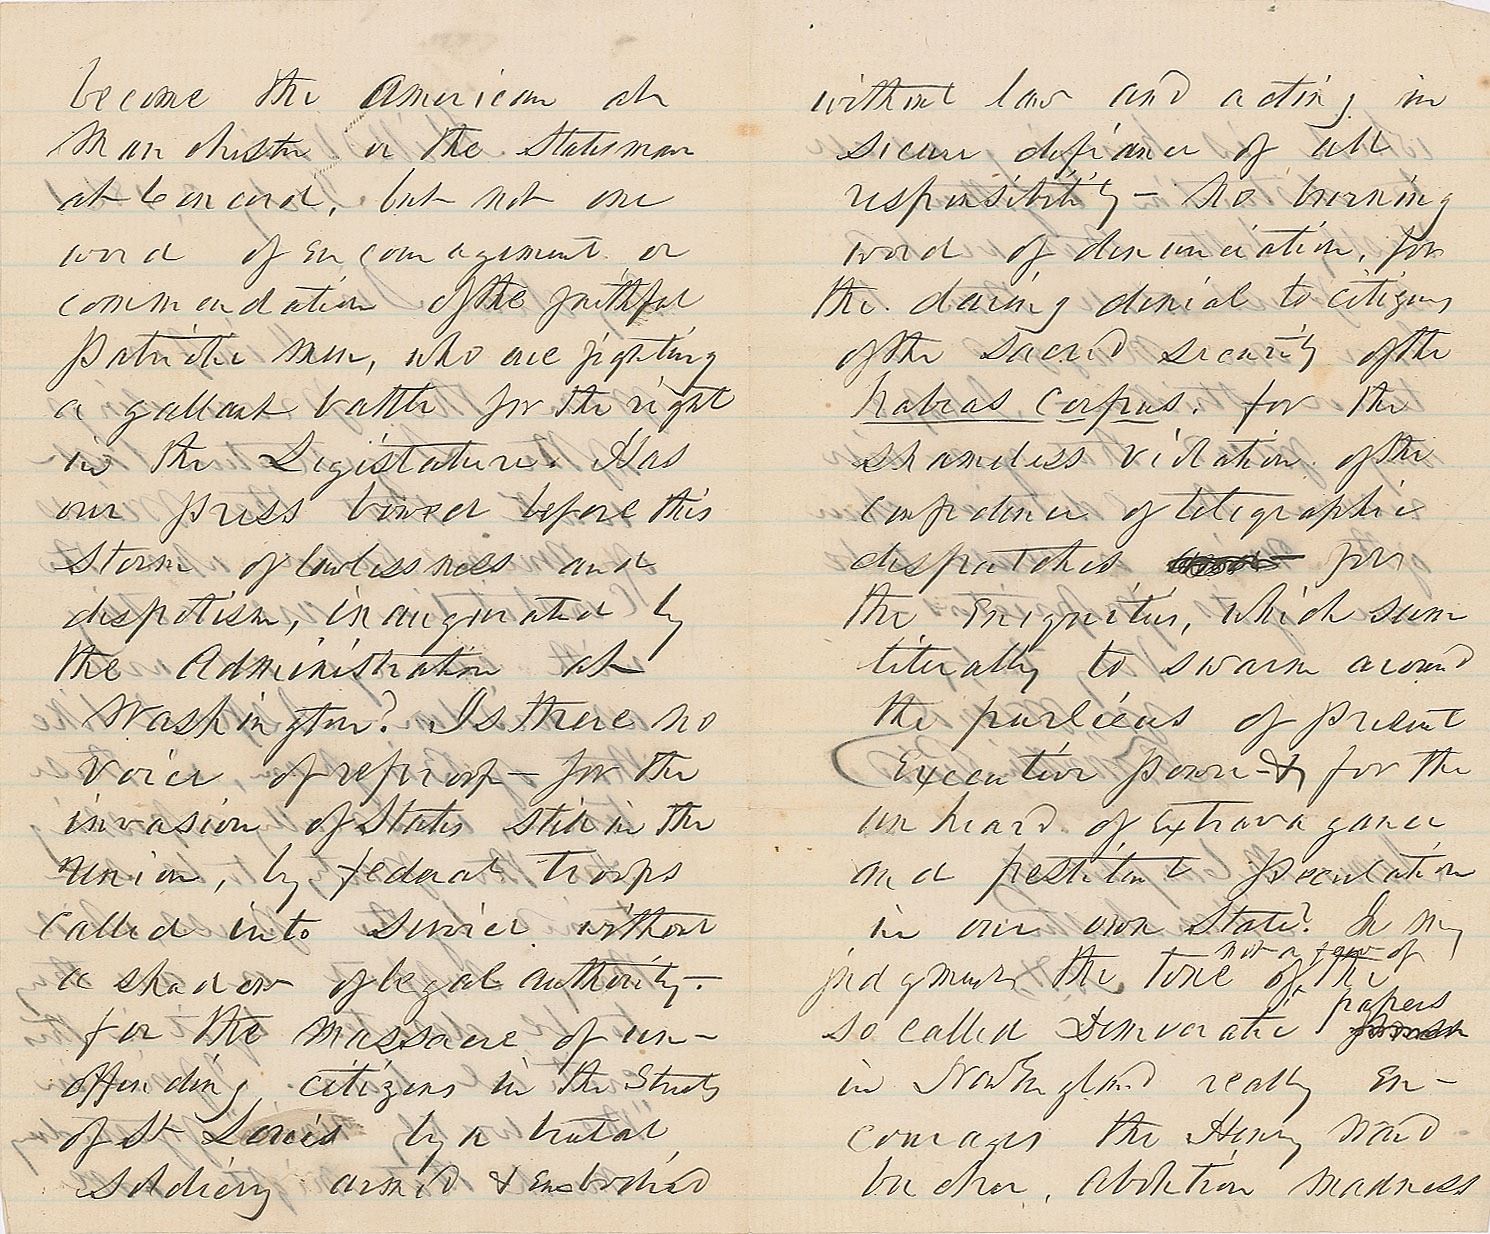 become the American at
Manchester or the Statesman
at Concord, but not one
word of encouragement or
commendation of the faithful
patriotic men, who are fighting
a gallant battle for the right
in the Legislature. Has
our press bowed before this
storm of lawlessness and
despotism, inaugurated by
the Administration at
Washington? Is there no
voice of reproof - for the
invasion of States still in the
Union, by federal troops
called into service without
a shadow of legal authority -
for the massacre of un-
offending citizens in the Streets
of St Louis by a brutal
soldiery armed & embodied
without law and acting in
secure defiance of all
responsibility - no burning
word of denunciation, for
the daring denial to citizens
of the sacred security of the
habeas corpus. for the
shameless violation of the
confidence of telegraphic
dispatches for
the iniquities, which seem
literally to swarm around
the purlieus of present
Executive power - & for the
unheard of extravagance
and pestilent peculation
in our own State? In my
judgment the tone of not a few of the
so called Democratic papers
in New England really en-
courages the Henry Ward
Beecher, abolition madness